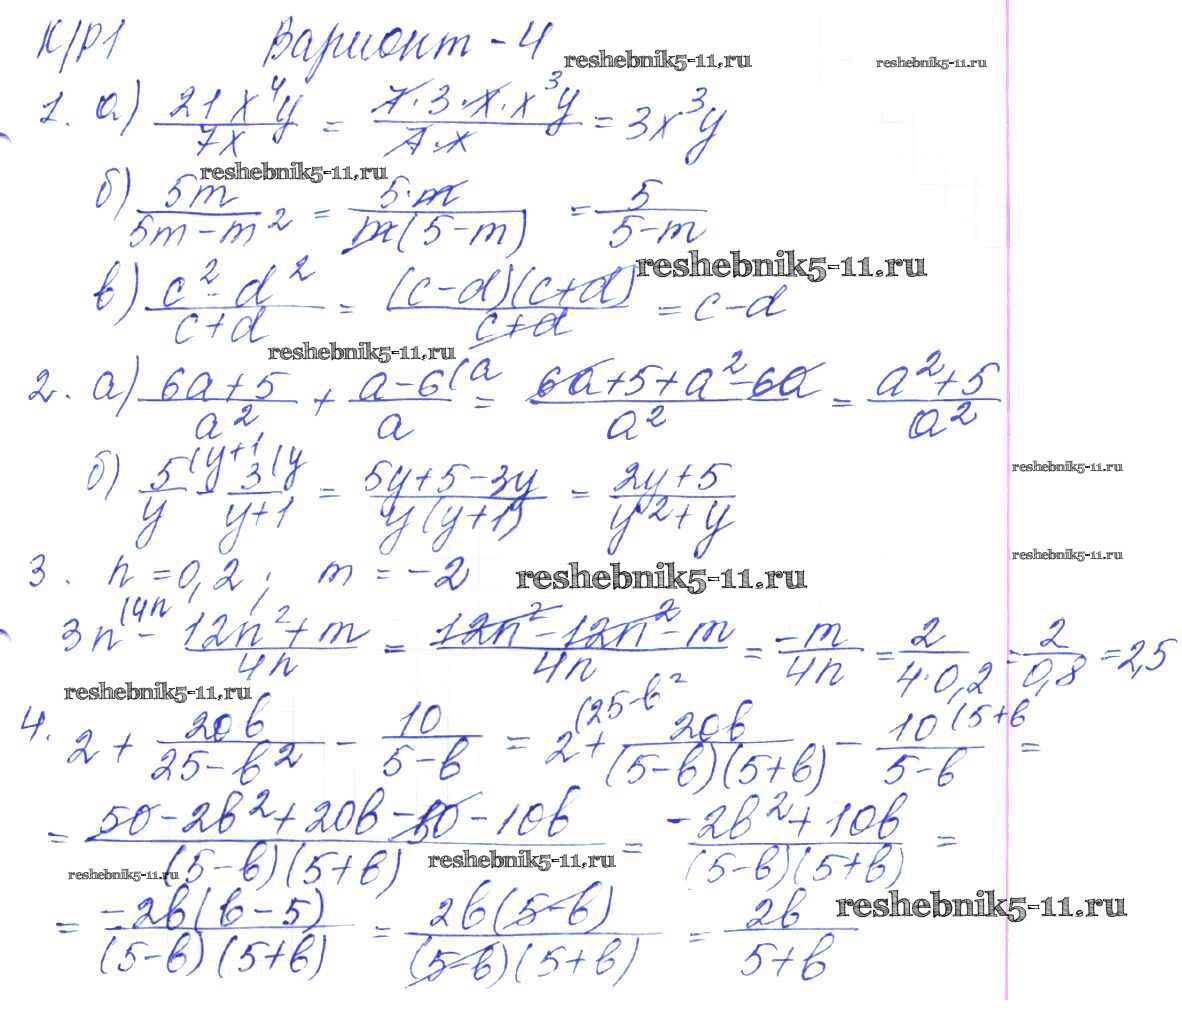 К/Р1 Вариант - 4
reshebnik5-11.ru reshebnik5-11.ru
1. а) 21x⁴y / 7x = 7·3·x·x³y / 7·x = 3x³y
reshebnik5-11.ru
б) 5m / 5m-m² = 5·m / m(5-m) = 5 / 5-m
reshebnik5-11.ru
в) c²-d² / c+d = (c-d)(c+d) / c+d = c-d
reshebnik5-11.ru
2. а) 6a+5 / a² + a-6 (a / a = 6a+5+a²-6a / a² = a²+5 / a²
reshebnik5-11.ru
б) 5 (y+1 / y - 3 (y / y+1 = 5y+5-3y / y(y+1) = 2y+5 / y²+y
reshebnik5-11.ru
3. n = 0,2; m = -2
reshebnik5-11.ru
3n (4n - 12n²+m / 4n = 12n²-12n²-m / 4n = -m / 4n = 2 / 4·0,2 = 2 / 0,8 = 2,5
reshebnik5-11.ru
4. 2 + 20b / 25-b² - 10 / 5-b = 2 (25-b² + 20b / (5-b)(5+b) - 10 (5+b / 5-b =
= 50-2b²+20b-50-10b / (5-b)(5+b) = -2b²+10b / (5-b)(5+b) =
reshebnik5-11.ru reshebnik5-11.ru
= -2b(b-5) / (5-b)(5+b) = 2b(5-b) / (5-b)(5+b) = 2b / 5+b
reshebnik5-11.ru